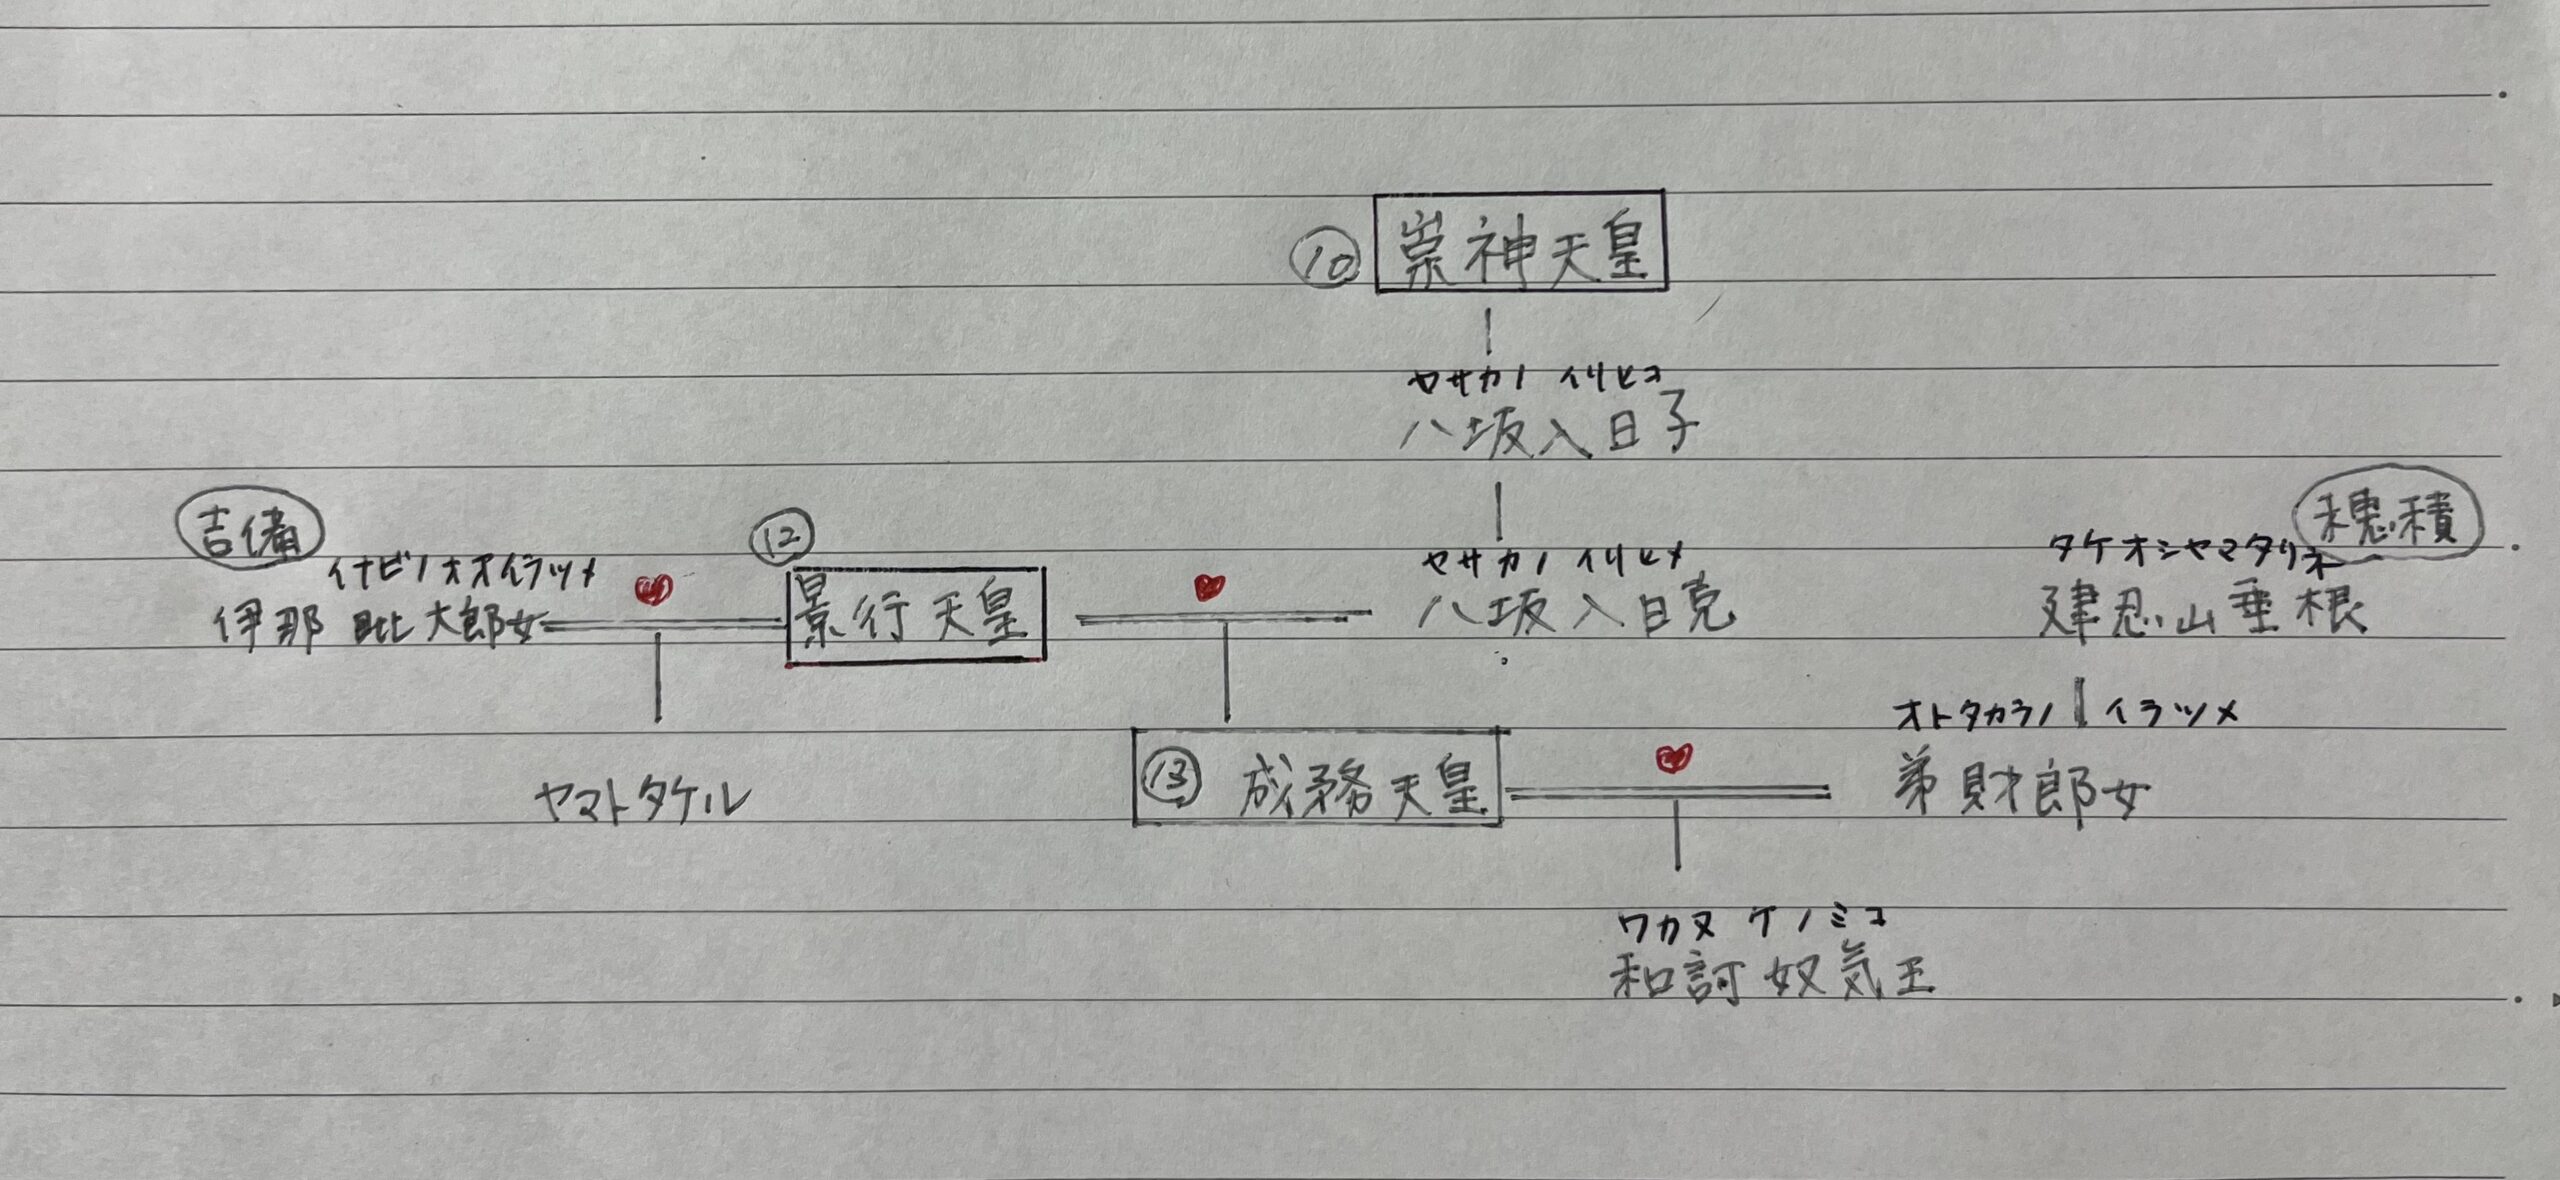 ⑩ 崇神天皇
ヤサカノ イリヒコ
八坂入日子
吉備
イナビノオオイラツメ
伊那毗大郎女
⑫
景行天皇
ヤサカノ イリヒメ
八坂入日売
穂積
タケオシヤマタリネ
建忍山垂根
ヤマトタケル
⑬ 成務天皇
オトタカラノイラツメ
弟財郎女
ワカヌケノミコ
和訶奴気王